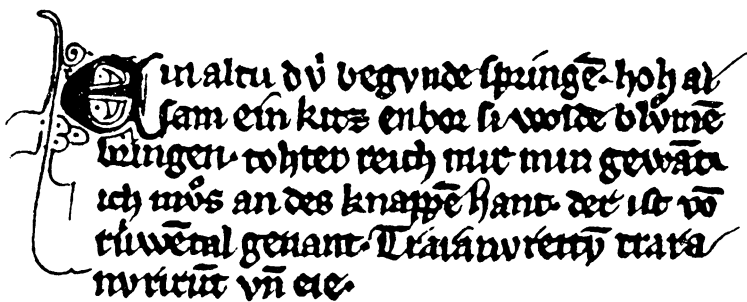 Ein altu dv̓ begvnde springē· hoh al
sam ein kitz enbor si wolde blv̊mē
bringen· tohter reich mir min gewāt·
ich mv̊s an des knappē hant· der ist vō
rúwētal genant· Traranvrettv̄ trara
nvrirūt vn̄ eie·